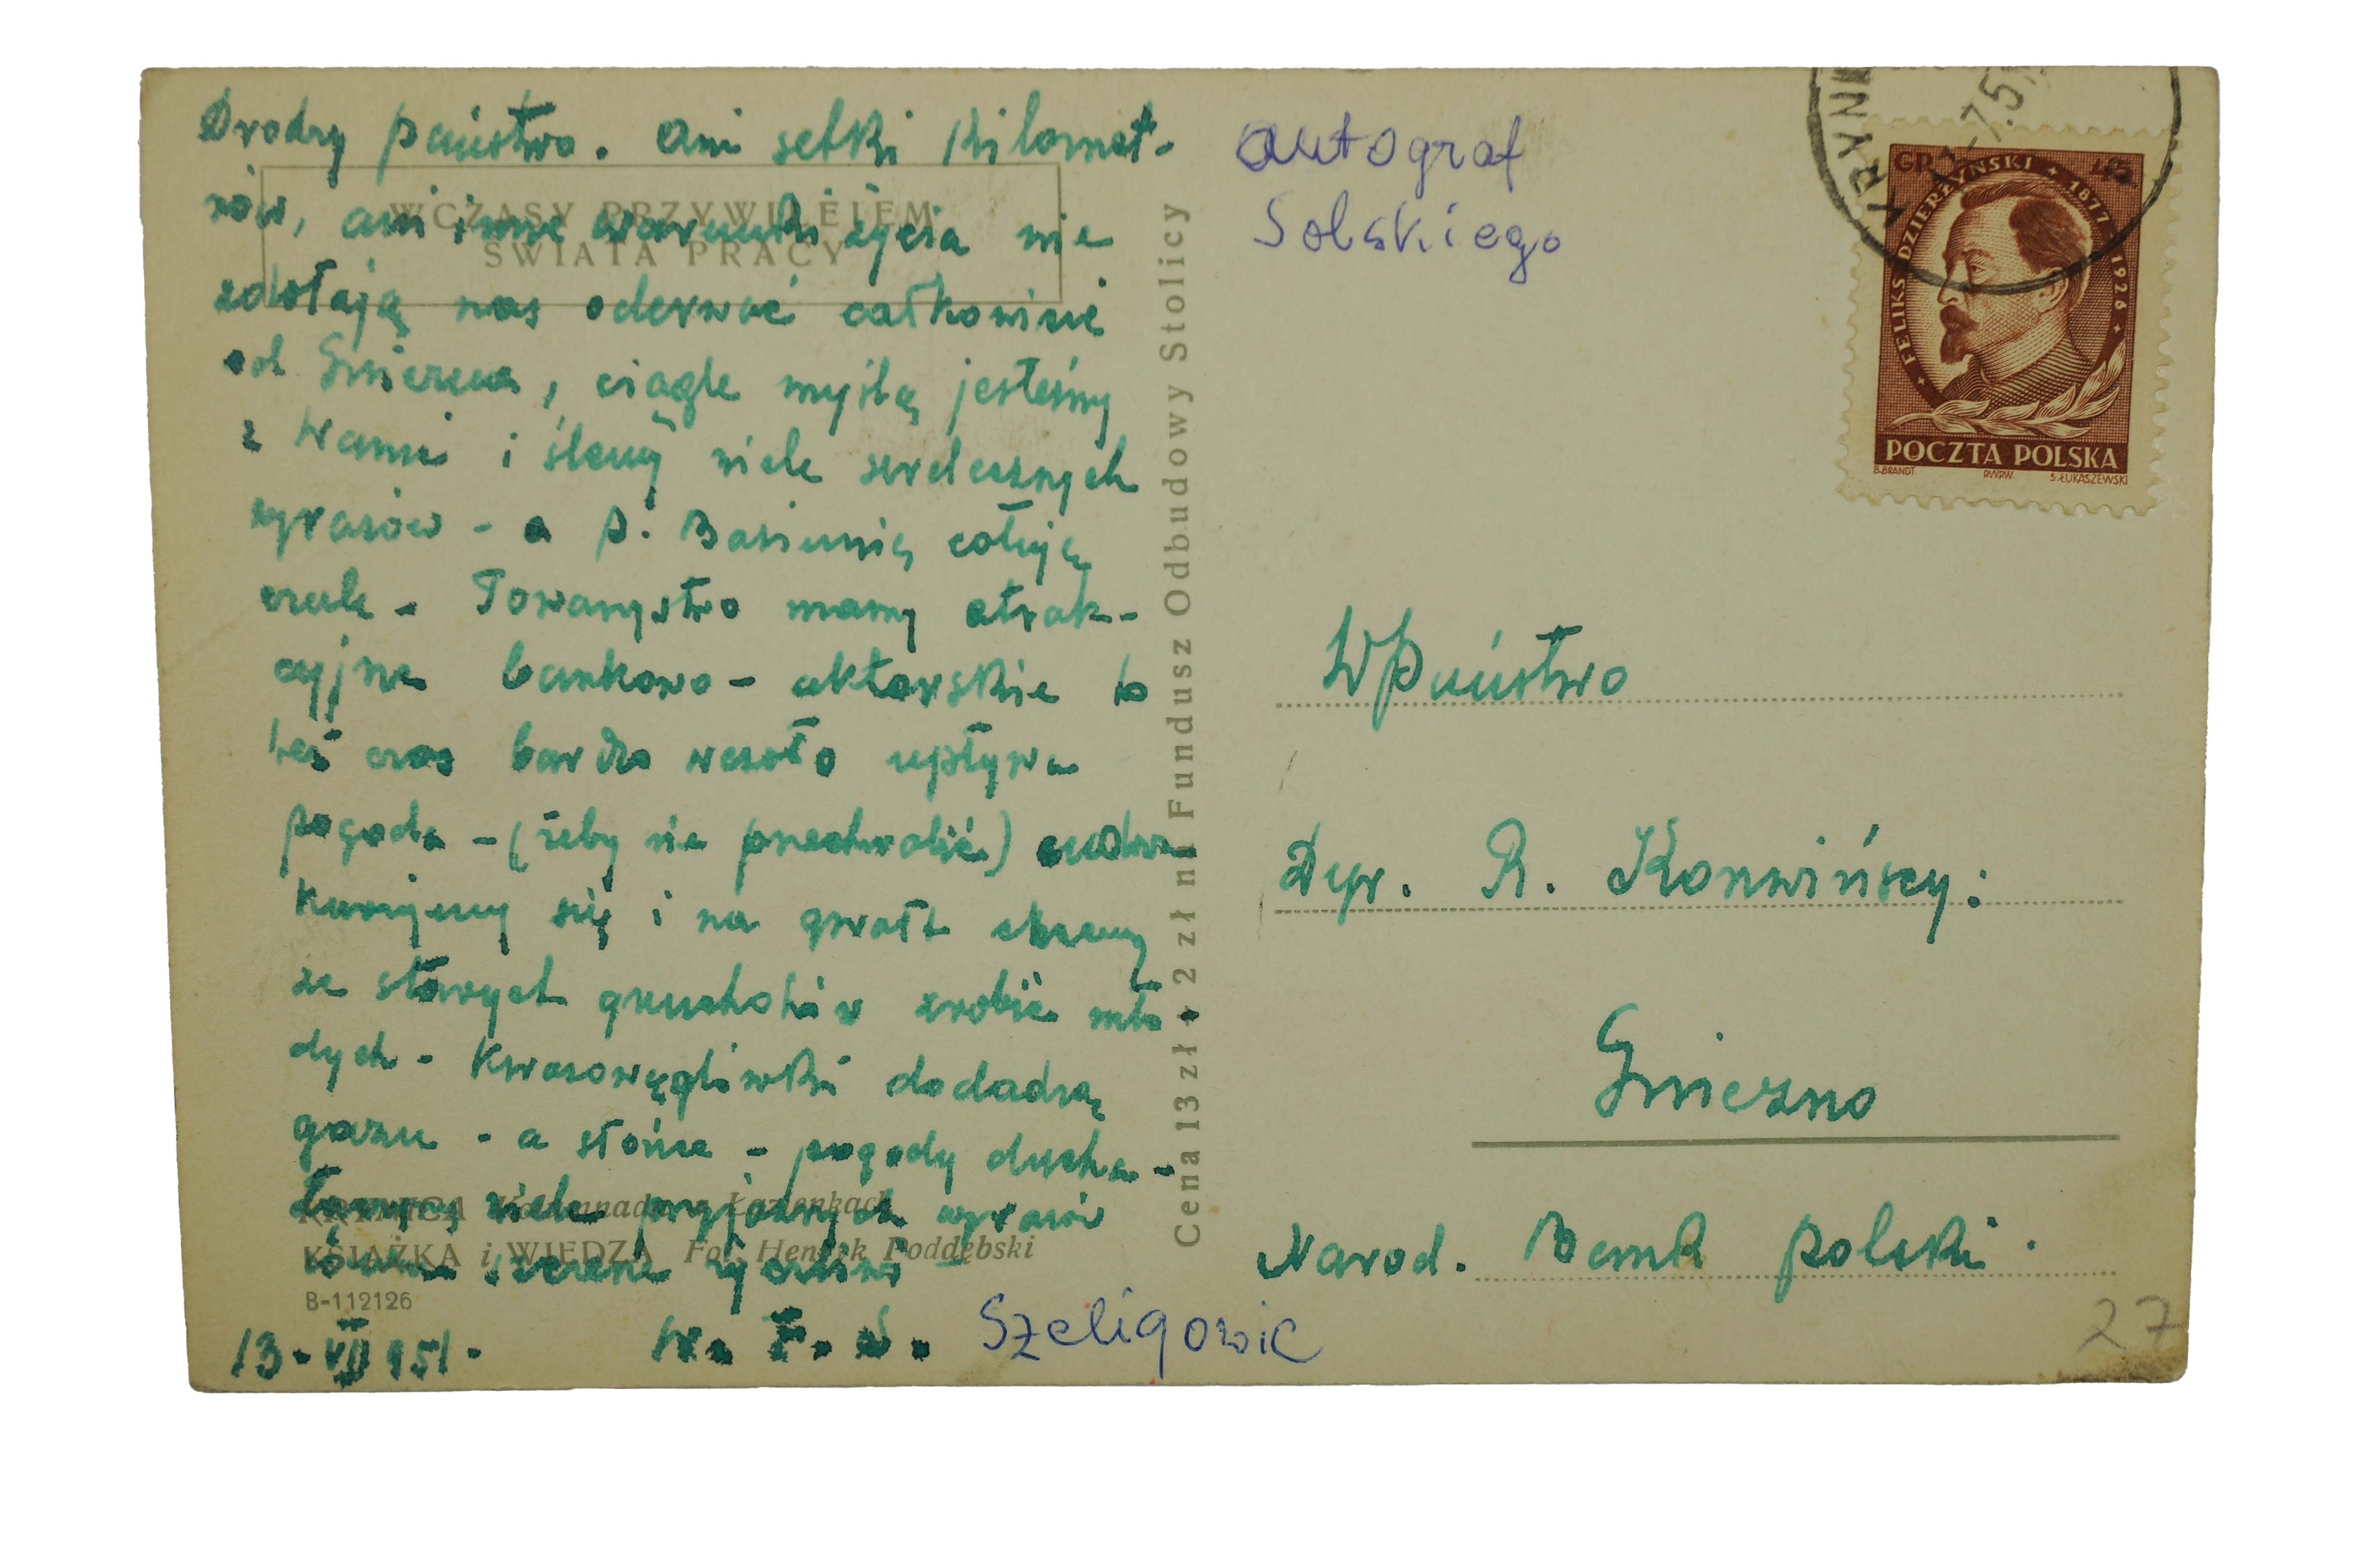 Drodzy państwo. Ani setki kilomet-
rów, ani inne warunki życia nie
zdołają nas oderwać całkowicie
od Gniezna, ciągle myślą jesteśmy
z Wami i ślemy wiele serdecznych
wyrazów - a p. Basiunię całuję
czule - Towarzystwo mamy atrak-
cyjne bankowo - aktorskie to
też czas bardzo wesoło upływa
pogoda - (żeby nie przechwalić) cudna
kurujemy się i na gwałt chcemy
ze starych gruchotów zrobić mło
dych - Kwasowęglówki dodadzą
gazu - a słońce - pogody ducha -
wiele przyjaznych wyrazów
szczere
13 - VII 951 -
W. F. S. Szeligowic
WCZASY PRZYWILEJEM
ŚWIATA PRACY
KRYNICA Kolumnada w Łazienkach
KSIĄŻKA i WIEDZA Fot. Henryk Poddębski
B-112126
Cena 13 zł + 2 zł na Fundusz Odbudowy Stolicy
autograf
Solskiego
KRYNI
7.51
GR. 45
FELIKS DZIERŻYŃSKI + 1877 + 1926 +
POCZTA POLSKA
B.BRANDT PWPW. S.ŁUKASZEWSKI
WPaństwo
Dyr. R. Konwińscy:
Gniezno
Narod. Bank Polski.
27